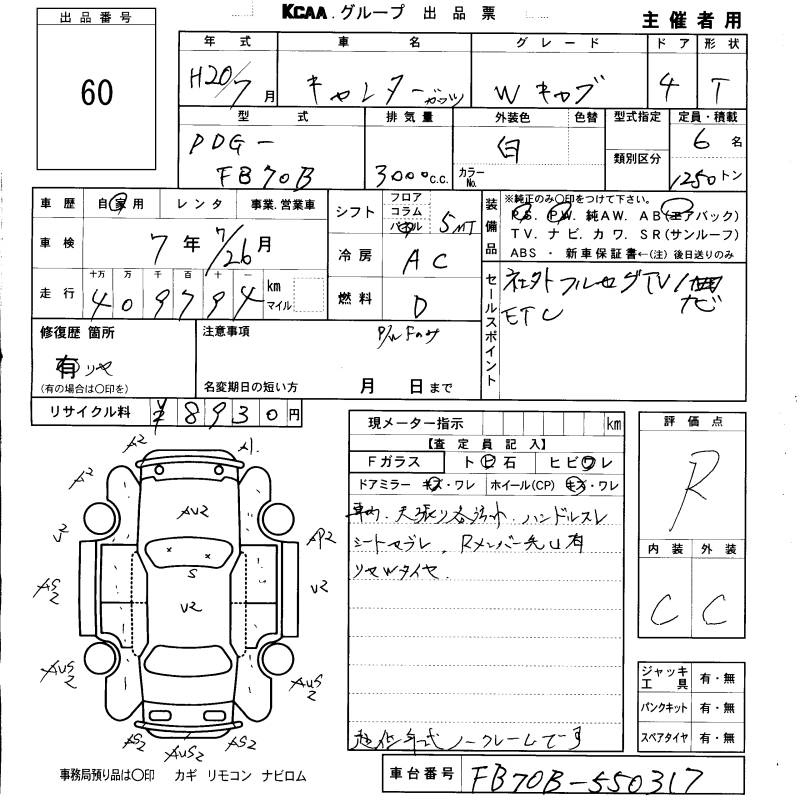 出品番号
60
KCAA. グループ 出品票
主催者用
年式 車名 グレード ドア 形状
H20/7月 キャンター ガッツ Wキャブ 4 T
型式 排気量 外装色 色替 型式指定 定員・積載
PDG-
FB70B
3000 c.c.
白
カラーNo.
類別区分
6 名
1250 トン
車歴 自家用 レンタ 事業.営業車
車検 7年 7/26月
走行 十万 万 千 百 十 一 km マイル
409794
シフト フロア コラム パネル 5MT
冷房 AC
燃料 D
装備品
※純正のみ〇印をつけて下さい。
P.S. P.W. 純AW. AB(エアバック)
TV. ナビ. カワ. SR(サンルーフ)
ABS ・ 新車保証書←(注)後日送りのみ
セールスポイント
社外フルセグTV/ナビ
ETC
修復歴 箇所
有 リヤ
(有の場合は〇印を)
注意事項
P/W Fのみ
名変期日の短い方 月 日まで
リサイクル料 ¥8930円
現メーター指示 km
【査定員記入】
Fガラス ト ビ 石 ヒビ ワレ
ドアミラー キズ・ワレ ホイール(CP) キズ・ワレ
車内. 天張り 各 . ハンドルスレ
シートヤブレ. Rメンバー先凹有
リヤWタイヤ.
年式 ノークレームです
評価点
R
内装 外装
C C
ジャッキ 工具 有・無
パンクキット 有・無
スペアタイヤ 有・無
A2 A1
A2
AU2
AP2
S
AS2 U2 U2
AUS2 AUS2
AS2 AUS2 AS2
事務局預り品は〇印 カギ リモコン ナビロム
車台番号 FB70B-550317